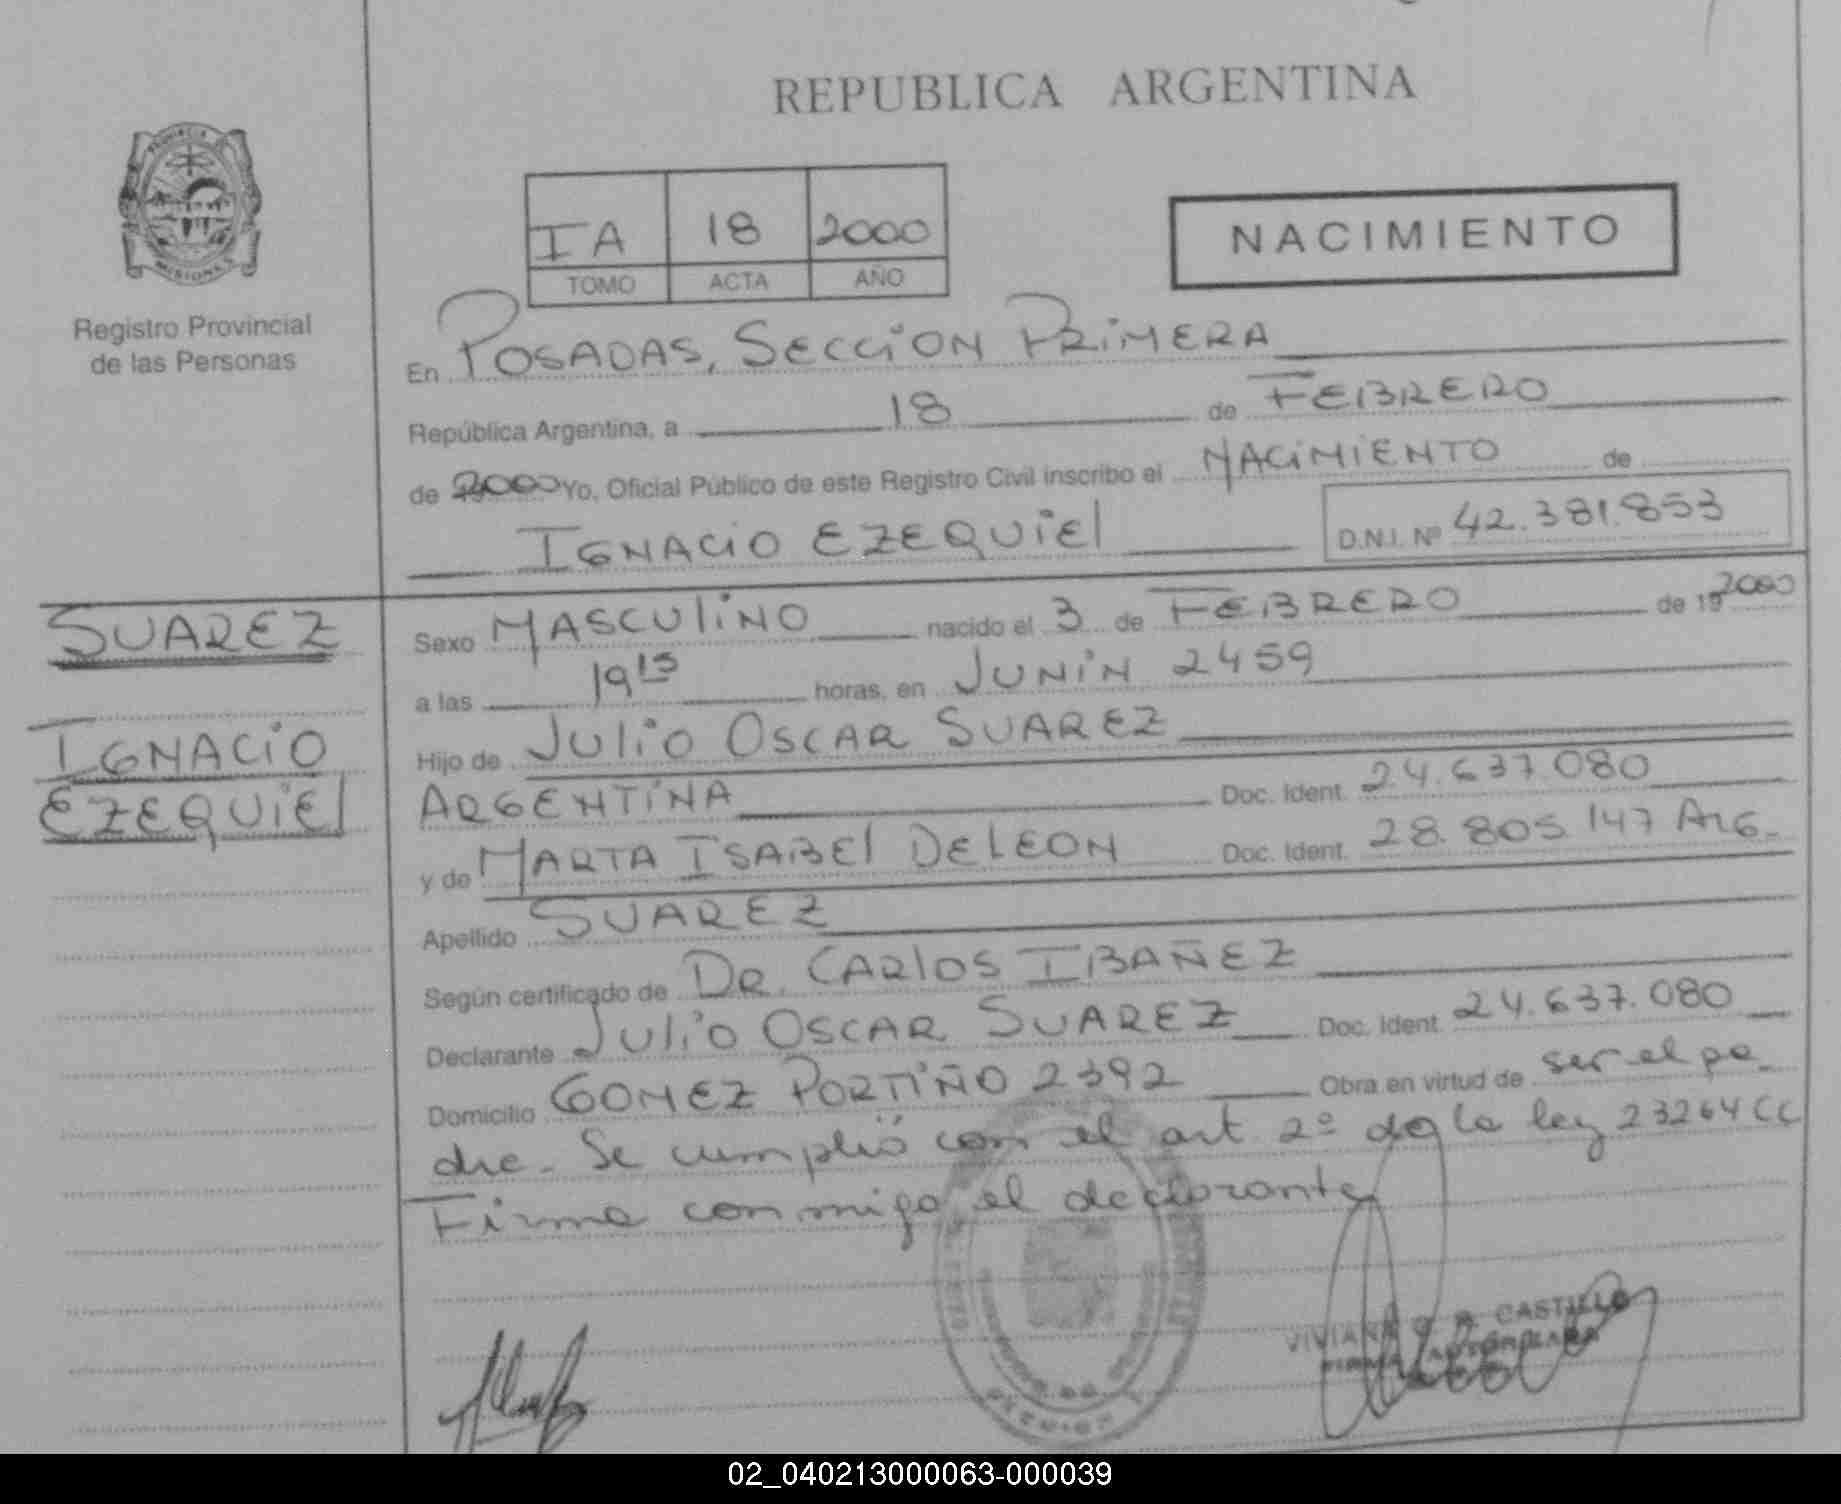 REPUBLICA ARGENTINA
PROVINCIA
MISIONES
Registro Provincial
de las Personas
IA 18 2000
TOMO ACTA AÑO
NACIMIENTO
En POSADAS, SECCION PRIMERA
República Argentina, a 18 de FEBRERO
de 2000 Yo, Oficial Público de este Registro Civil inscribo el NACIMIENTO de
IGNACIO EZEQUIEL D.N.I. Nº 42.381.853
SUAREZ
IGNACIO
EZEQUIEL
Sexo MASCULINO nacido el 3 de FEBRERO de 19 2000
a las 19 15 horas, en JUNIN 2459
Hijo de JULIO OSCAR SUAREZ
ARGENTINA Doc. Ident. 24.637.080
y de MARTA ISABEL DELEON Doc. Ident. 28.805.147 ARG.
Apellido SUAREZ
Según certificado de DR. CARLOS IBAÑEZ
Declarante JULIO OSCAR SUAREZ Doc. Ident. 24.637.080
Domicilio GOMEZ PORTIÑO 2392 Obra en virtud de ser el pa
dre. Se cumplió con el art 2º de la ley 23264 CC
Firma conmigo el declarante
VIVIANA R. CASTILLO
FIRMA AUTORIZADA
02_040213000063-000039